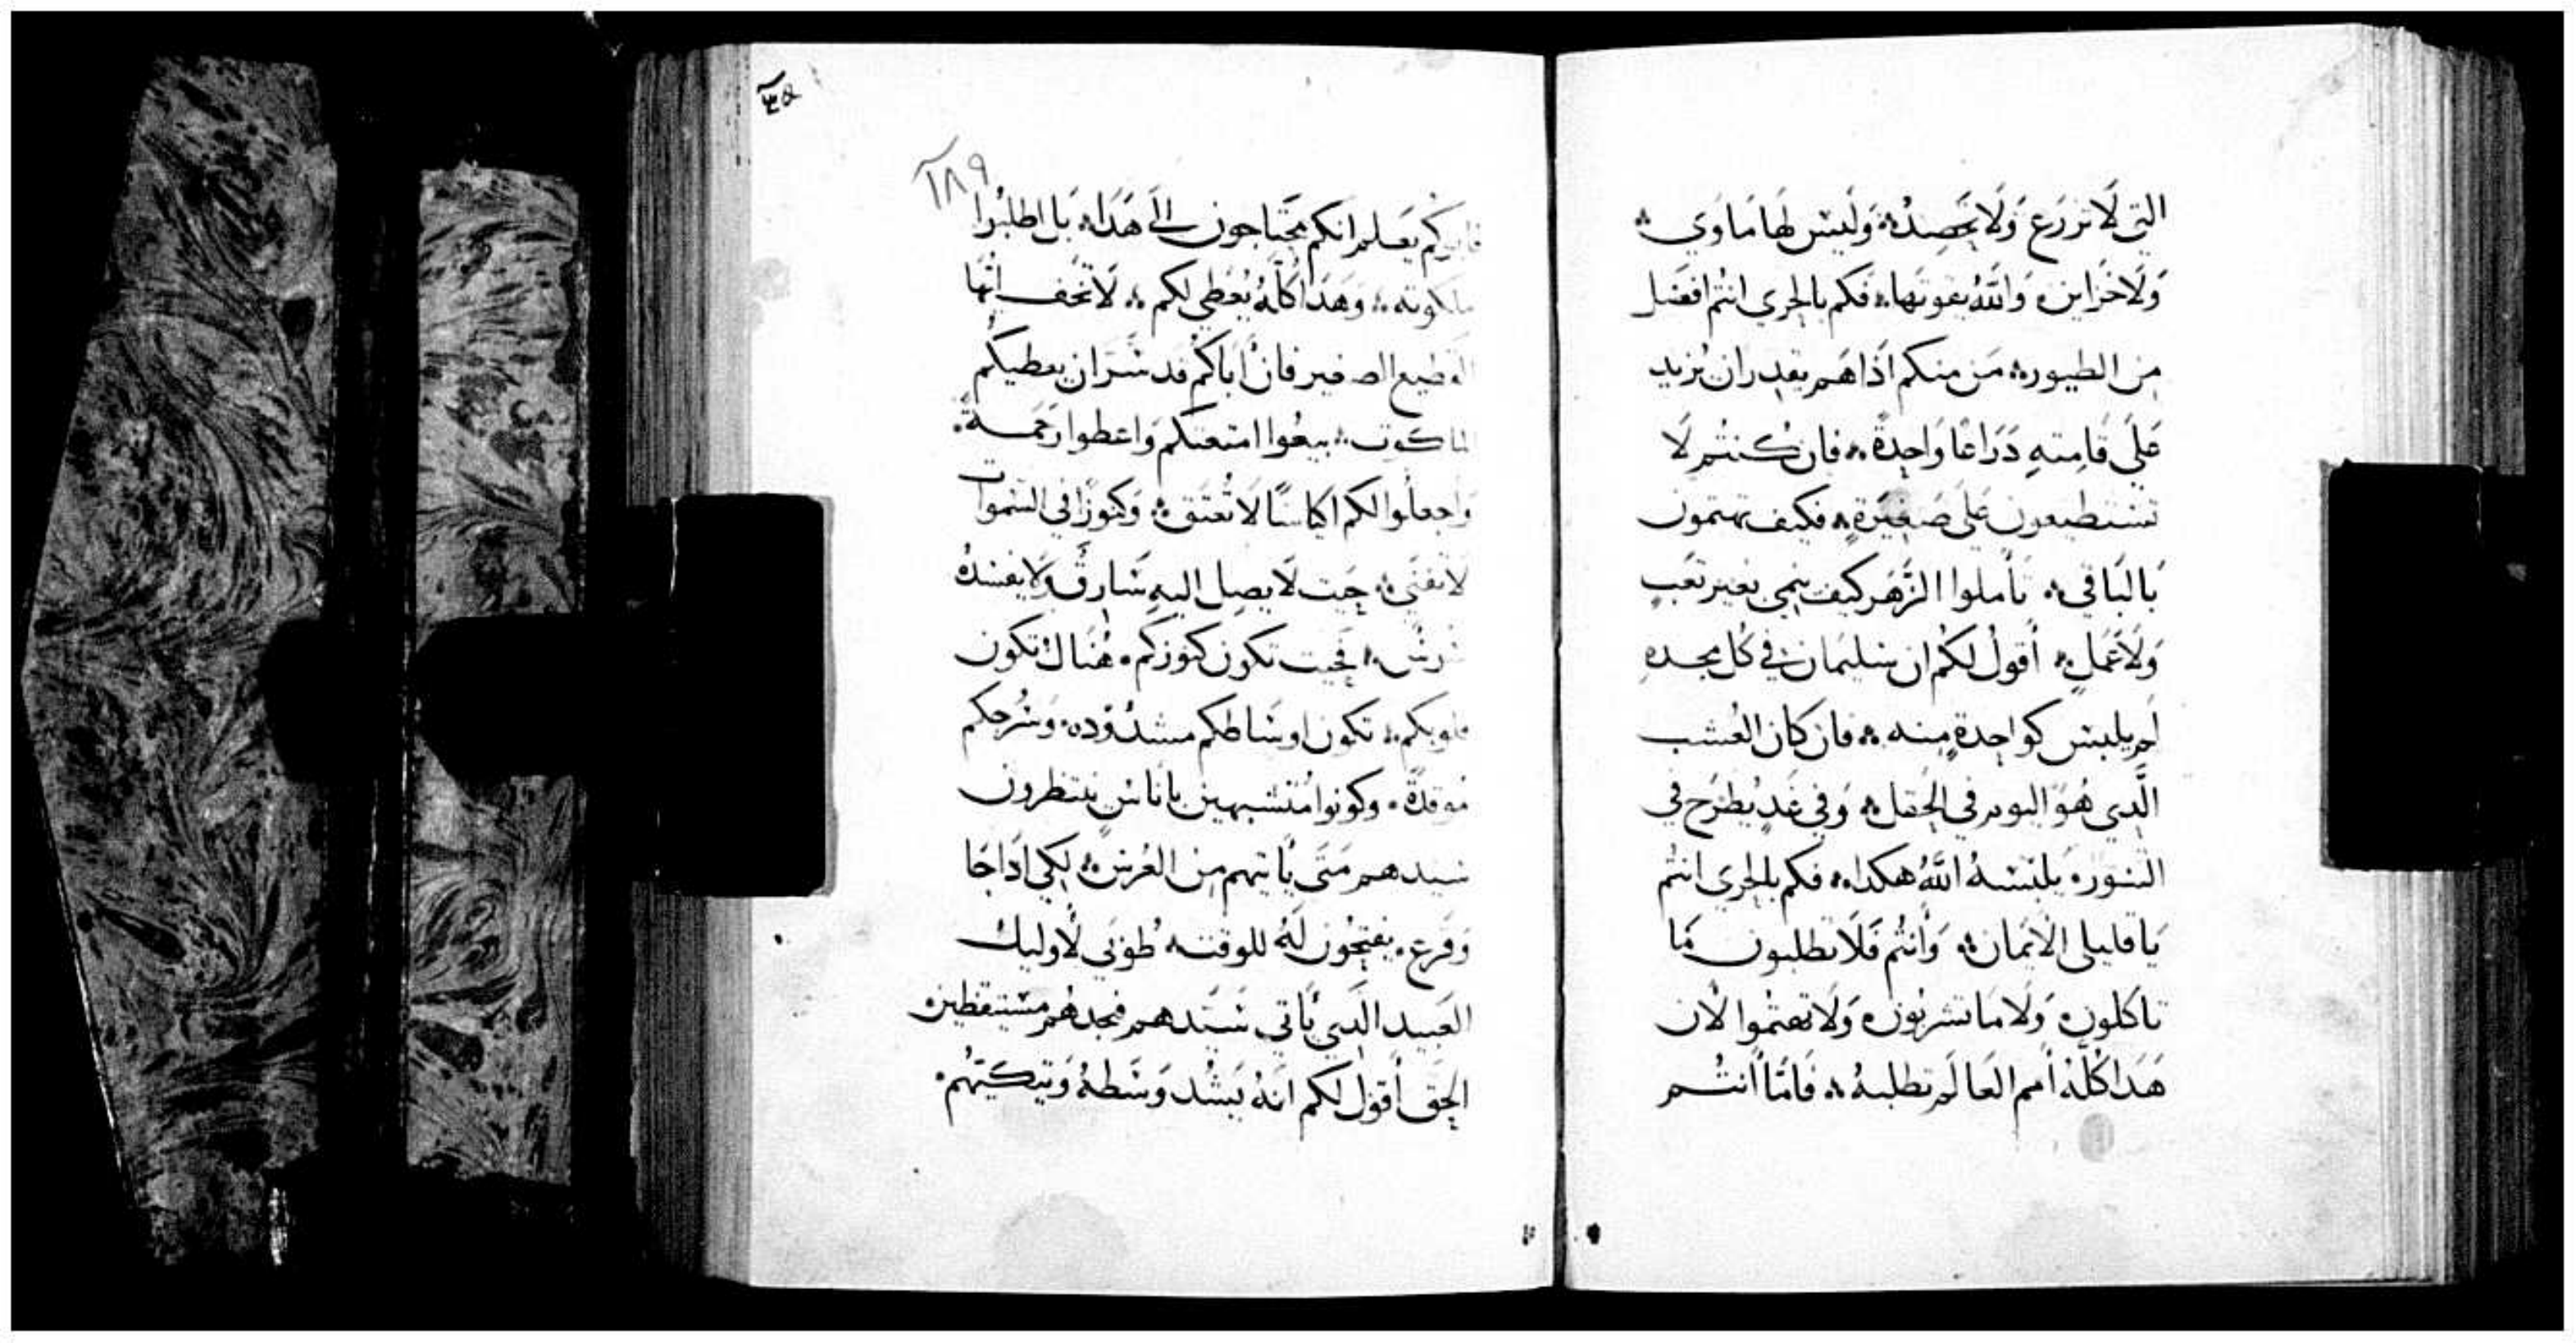 التي لَا تزرَع وَلَا تحَصِدُ؞ وَليسَ لهَا مَاوَي؞
وَلَا خَزاين؞ وَاللَّهُ يقوتهَا؞ فكم بالحِري انتم افضَل
مِن الطيور؞ مَن منكم اذَا هَم يقدِر ان يُزيد
عَلَي قامِتهِ ذرَاعًا وَاحِدةً؞ فان كنتُم لَا
تستطيعون عَلى صَغيَرةٍ؞ فكيف تهتمون
بَالبَاقي؞ تأملوا الزَّهَر كيف ينمي بغير تعَبٍ
وَلَا عَمَلٍ؞ أقولُ لكُم ان سُليمَان في كُل مجده
لَم يلبس كوَاحِدةٍ منه؞ فان كان العُشب
الَّدِي هُوَ اليوم في الحَقل؞ وَفي غَدٍ يُطرَح في
التنور؞ يلبسَهُ اللَّهُ هكدا؞ فكم بالحِري انتُم
يَا قليلي الايمَان؞ وَأنتُم فَلَا تطلبون مَا
تاكلون؞ وَلَا مَا تشربُون؞ وَلَا تهتمُوا لأن
هَدَا كُلَّهُ أمم العَالَم تطلبهُ؞ فَامَّا أنتُم
١٨٩
فابوكُم يَعَلم انكم محتاجون الَي هَدَا؞ بَل اطلبُوا
ملكوته؞ وَهَدَا كُلهُ يُعُطي لكم؞ لَا تخف أيُّهَا
القطيع الصغير فانَّ ابَاكُم قد سُرَّ ان يعطيكُم
الملكوت؞ بيعُوا امتعتكم وَاعطوا رَحمَةً؞
وَاجعلوا لكم اكياسًا لَا تُعتَق؞ وَكنوزًا في السَموَات
لَا تفنَي؞ حيَث لَا يصِل اليهِ سَارقٌ وَلَا يفسدُهُ
سُوسٌ؞ فَحيث تكون كنوزكم؞ هُنَاك تكون
قلوبكم؞ تكون اوسَاطكم مشدُوُده؞ وَسُرجكم
مُوقدَةً؞ وكونوا مُتشبهين بأناسٍ ينتظرون
سيدهم مَتَي يَأتيهم مِن العُرسِ؞ لِكي اذَا جَا
وَقرَع؞ يفتحُون لَهُ للوقت؞ طُوبَي لأوليك
العَبيد الَّدِي يَأتي سَيّدهم فيجدهُم مستيقظين؞
الحَق أقولُ لكم انهُ يَشُد وَسَطهُ وَيتكيهُم؞